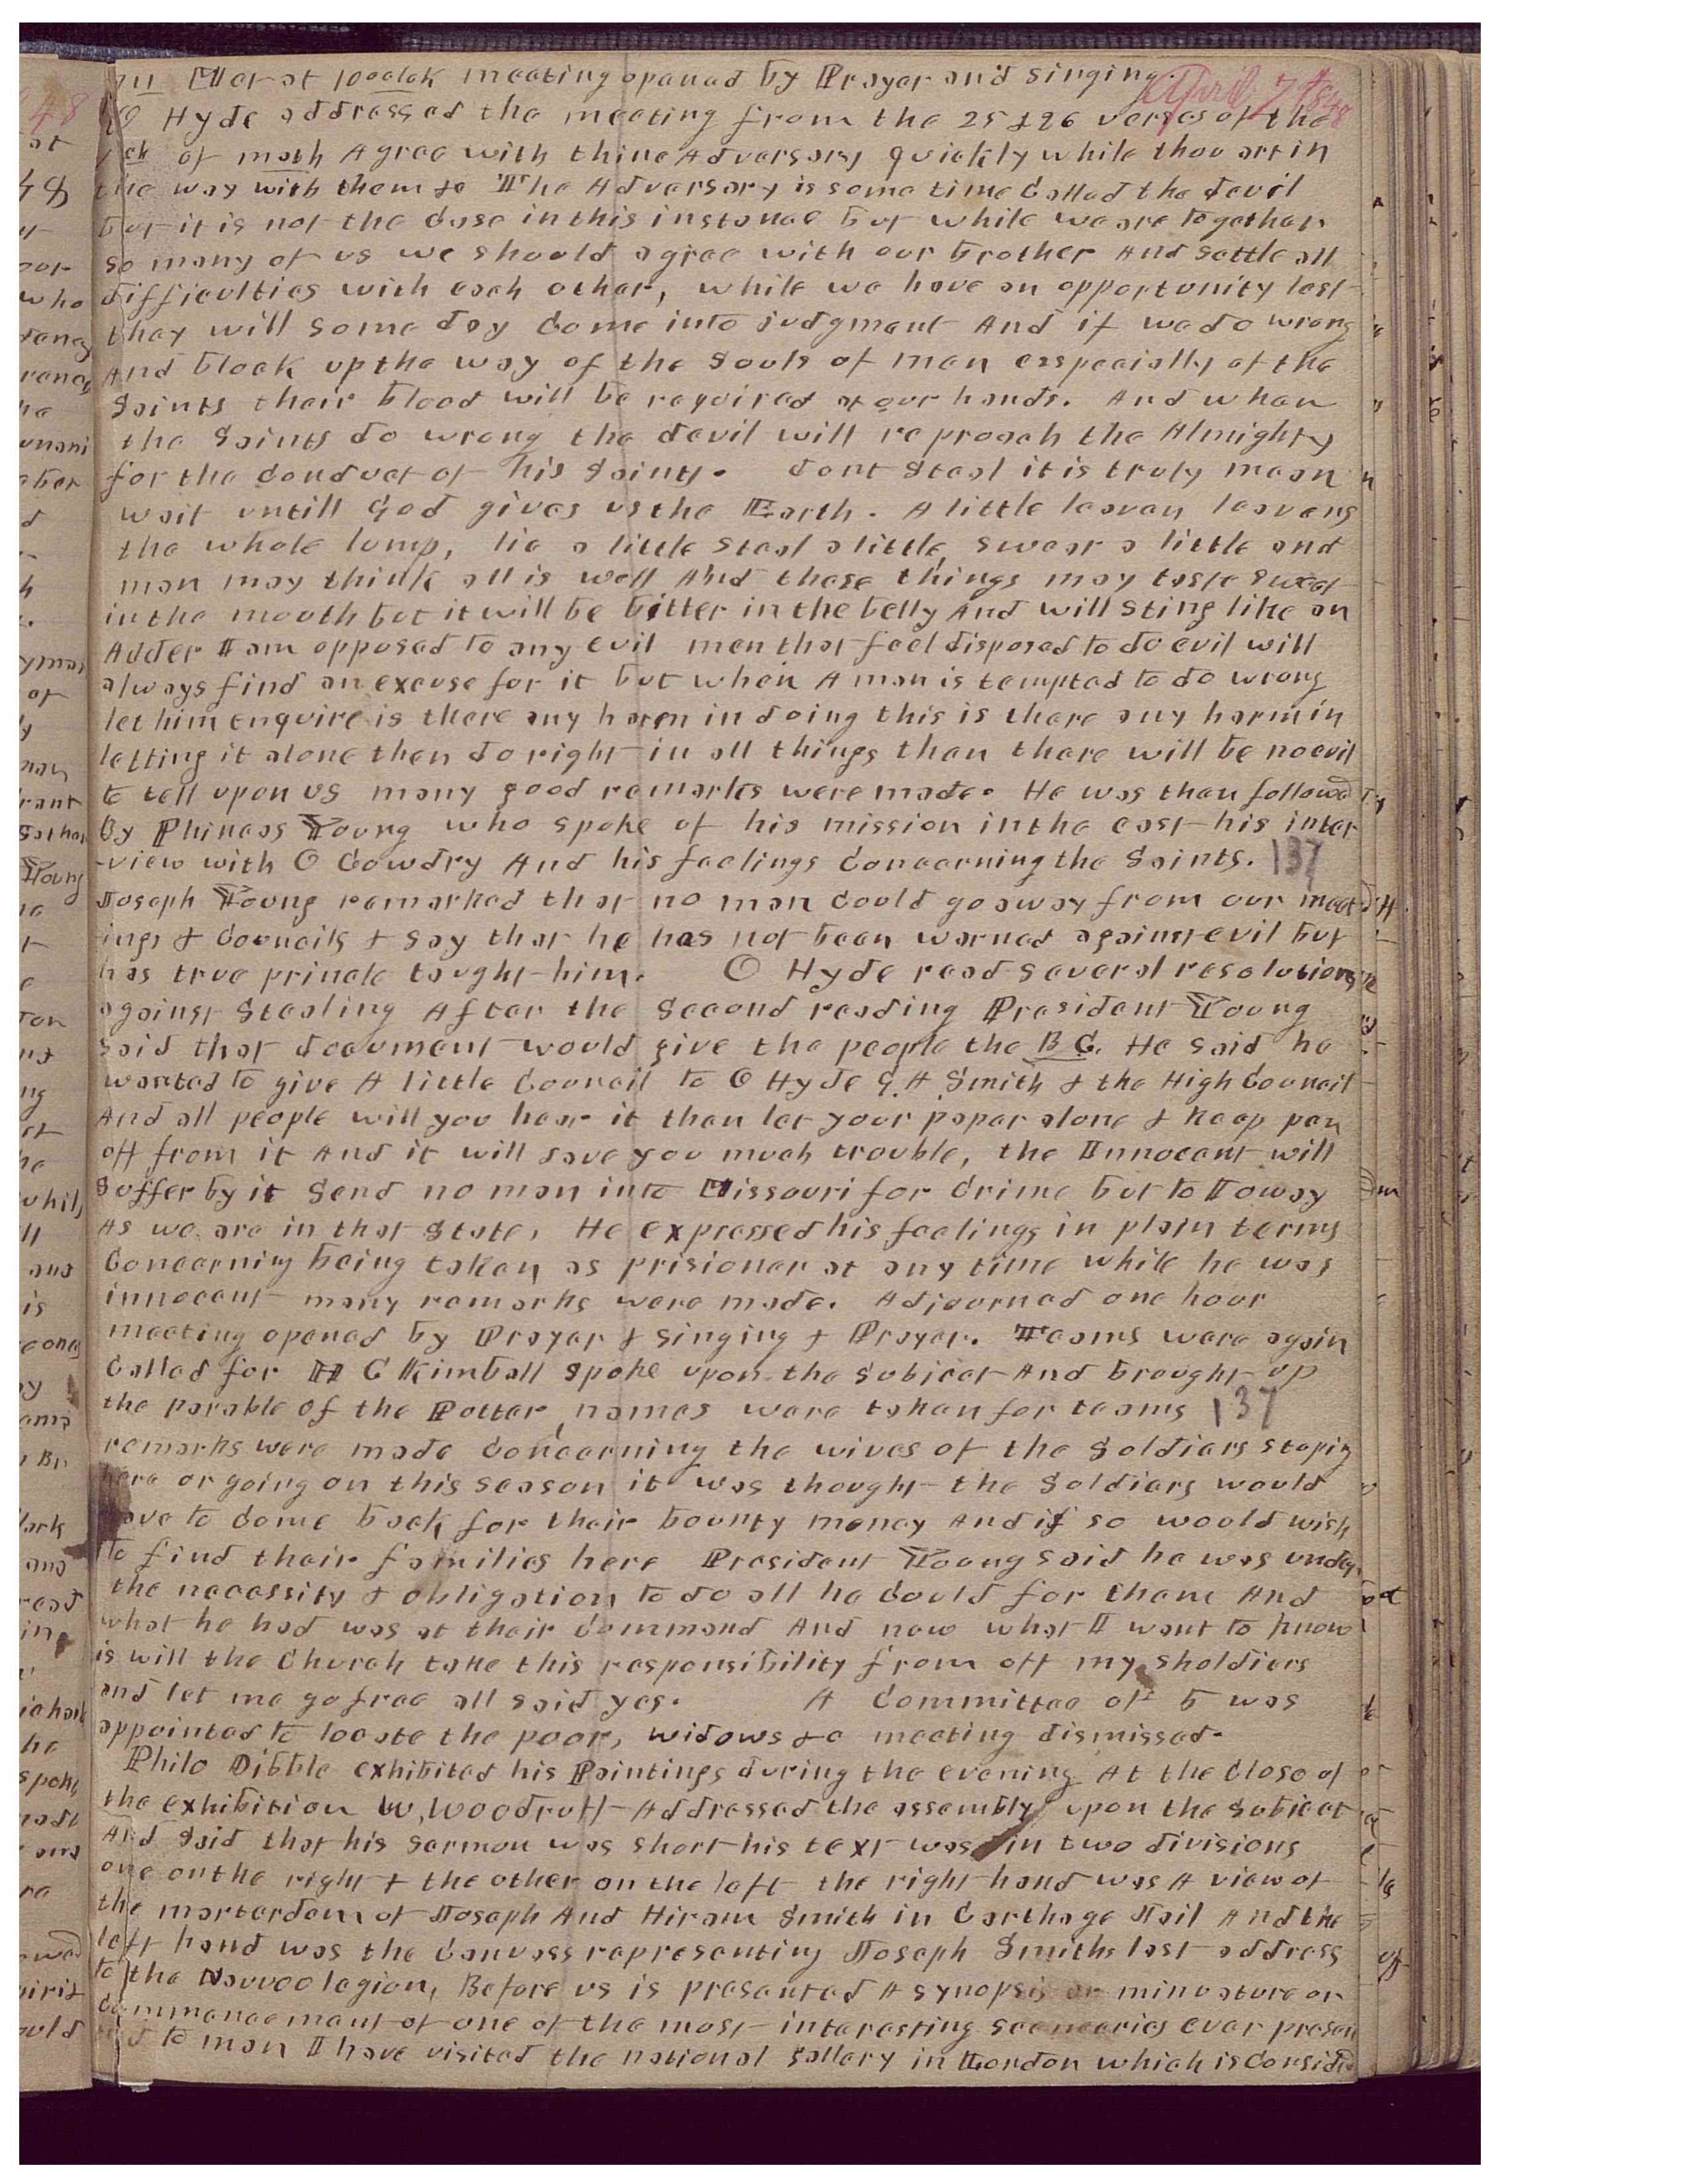 7th Met at 10 oclok meeting opened by Prayer and singing. April 7th 1848
O Hyde addressed the meeting from the 25 & 26 verses of the
5 ch of math Agree with thine Adversary quickly while thou art in
the way with them &c The Adversary is some time Called the devil
but it is not the Case in this instance but while we are together
so many of us we should agree with our brother And settle all
difficulties with each other, while we have an opportunity lest
they will some day Come into judgment And if we do wrong
And block up the way of the Souls of men esspecially of the
Saints their blood will be required at our hands. And when
the Saints do wrong the devil will reproach the Almighty
for the Conduct of his Saints. dont Steal it is truly mean
wait untill God gives us the Earth. A little leaven leavens
the whole lump, lie a little steal a little swear a little and
men may think all is well And these things may taste sweet
in the mouth but it will be bitter in the belly And will sting like an
Adder I am opposed to any evil men that feel disposed to do evil will
always find an excuse for it but when A man is tempted to do wrong
let him Enquire is there any harm in doing this is there any harm in
letting it alone then do right in all things then there will be no evil
to tell upon us many good remarks were made. He was then followed
By Phineas Young who spoke of his mission in the east his inter
-view with O Cowdry And his feelings Concerning the Saints. 137
Joseph Young remarked that no man Could go away from our meet
ings & Councils & say that he has not been warned against evil but
has true princle taught him. O Hyde read several resolutions
against Stealing After the Second reading President Young
said that document would give the people the B C. He said he
wanted to give A little Council to O Hyde G. A. Smith & the High Council
And all people will you hear it then let your paper alone & keep pen
off from it And it will save you much trouble, the Innocent will
Suffer by it Send no man into Missouri for Crime but to Ioway
As we are in that State, He expressed his feelings in plain terms
Concerning being taken as prisioner at any time while he was
innocent many remarks were made. Adjourned one hour
meeting opened by Prayer & singing & Prayer. Teams were again
Called for H C Kimball spoke upon the Subject And brought up
the parable of the Potter names were taken for teams 137
remarks were made Concerning the wives of the Soldiers stoping
here or going on this season it was thought the Soldiers would
have to Come back for their bounty money And if so would wish
to find their families here President Young said he was under
the necessity & obligation to do all he Could for them And
what he had was at their Command And now what I want to know
is will the Church take this responsibility from off my sholdiers
and let me go free all said yes. A Committee of 5 was
appointed to locate the poor, widows &c meeting dismissed.
Philo Dibble exhibited his Paintings during the evening At the Close of
the exhibition W, Woodruff Addressed the assembly upon the Subject
And Said that his Sermon was short his text was in two divisions
one on the right & the other on the left the right hand was A view of
the marterdom of Joseph And Hiram Smith in Carthage Jail And the
left hand was the Canvass representing Joseph Smiths last address
to the Nauvoo legion, Before us is presented A synopsis or minuature or
Commencement of one of the most interesting sceneeries ever presen
ted to man I have visited the national gallery in London which is Consid